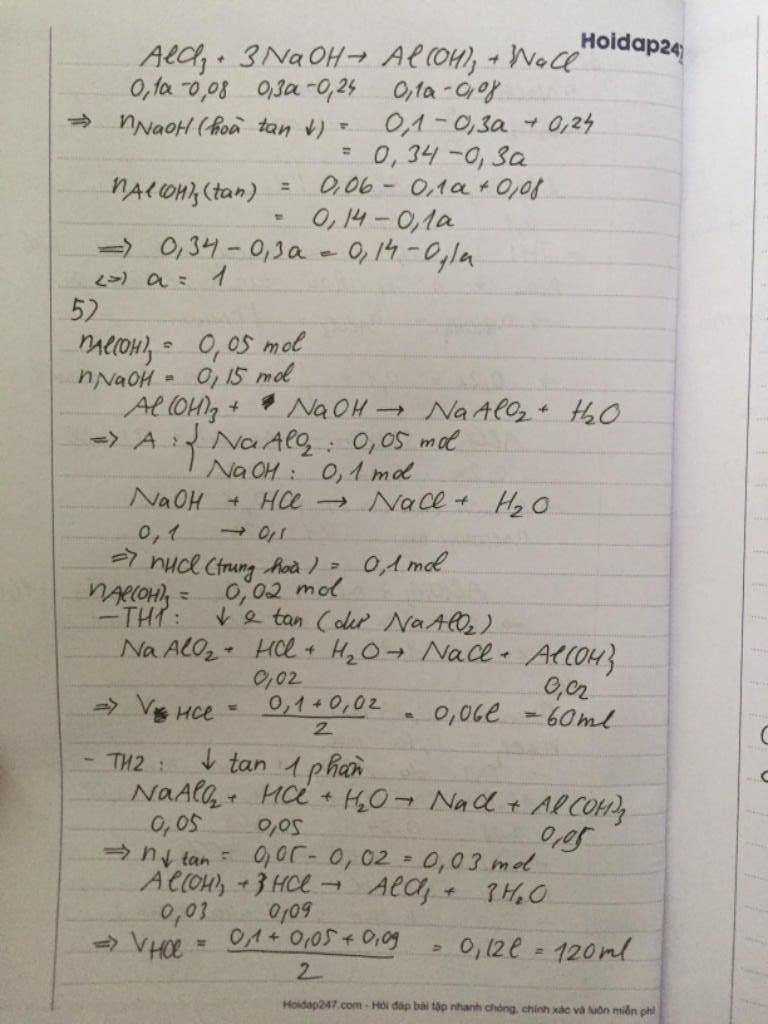 Hoidap247
AlCl₃ + 3NaOH → Al(OH)₃ + 3NaCl
0,1a-0,08 0,3a-0,24 0,1a-0,08
=> nNaOH (hoà tan ↓) = 0,1 - 0,3a + 0,24
= 0,34 - 0,3a
nAl(OH)₃ (tan) = 0,06 - 0,1a + 0,08
= 0,14 - 0,1a
=> 0,34 - 0,3a = 0,14 - 0,1a
<=> a = 1
5)
nAl(OH)₃ = 0,05 mol
nNaOH = 0,15 mol
Al(OH)₃ + NaOH → NaAlO₂ + H₂O
=> A : { NaAlO₂ : 0,05 mol
NaOH : 0,1 mol
NaOH + HCl → NaCl + H₂O
0,1 → 0,1
=> nHCl (trung hoà) = 0,1 mol
nAl(OH)₃ = 0,02 mol
- TH1 : ↓ k tan (dư NaAlO₂)
NaAlO₂ + HCl + H₂O → NaCl + Al(OH)₃
0,02 0,02
=> V HCl = (0,1 + 0,02)/2 = 0,06l = 60ml
- TH2 : ↓ tan 1 phần
NaAlO₂ + HCl + H₂O → NaCl + Al(OH)₃
0,05 0,05 0,05
=> n↓ tan = 0,05 - 0,02 = 0,03 mol
Al(OH)₃ + 3HCl → AlCl₃ + 3H₂O
0,03 0,09
=> VHCl = (0,1 + 0,05 + 0,09)/2 = 0,12l = 120ml
Hoidap247.com - Hỏi đáp bài tập nhanh chóng, chính xác và luôn miễn phí